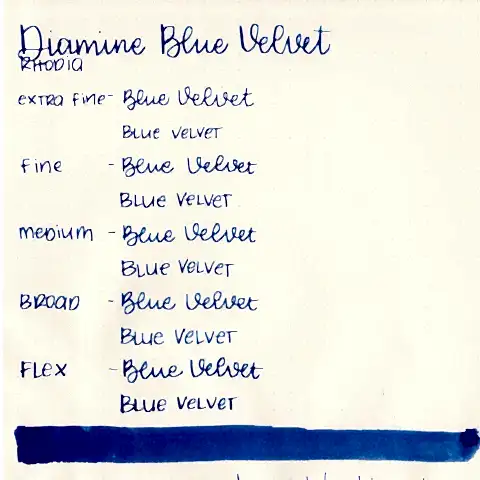 Diamine Blue Velvet
RHODIA
extra fine - Blue Velvet
Blue velvet
fine - Blue Velvet
Blue Velvet
medium - Blue Velvet
Blue Velvet
Broad - Blue Velvet
Blue Velvet
Flex - Blue Velvet
Blue Velvet